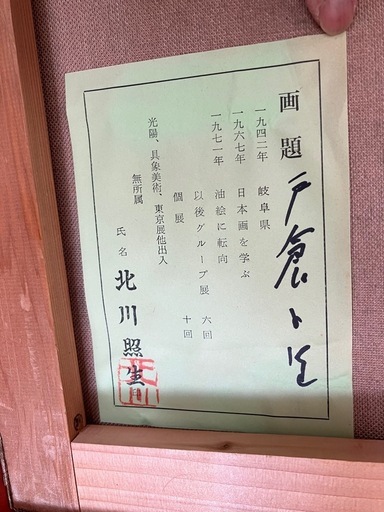 画題 戸倉
一九四二年 岐阜県
一九六七年 日本画を学ぶ
一九七一年 油絵に転向
以後グループ展 六回
個展 十回
光陽、具象美術、東京展他出入
無所属
氏名 北川照生